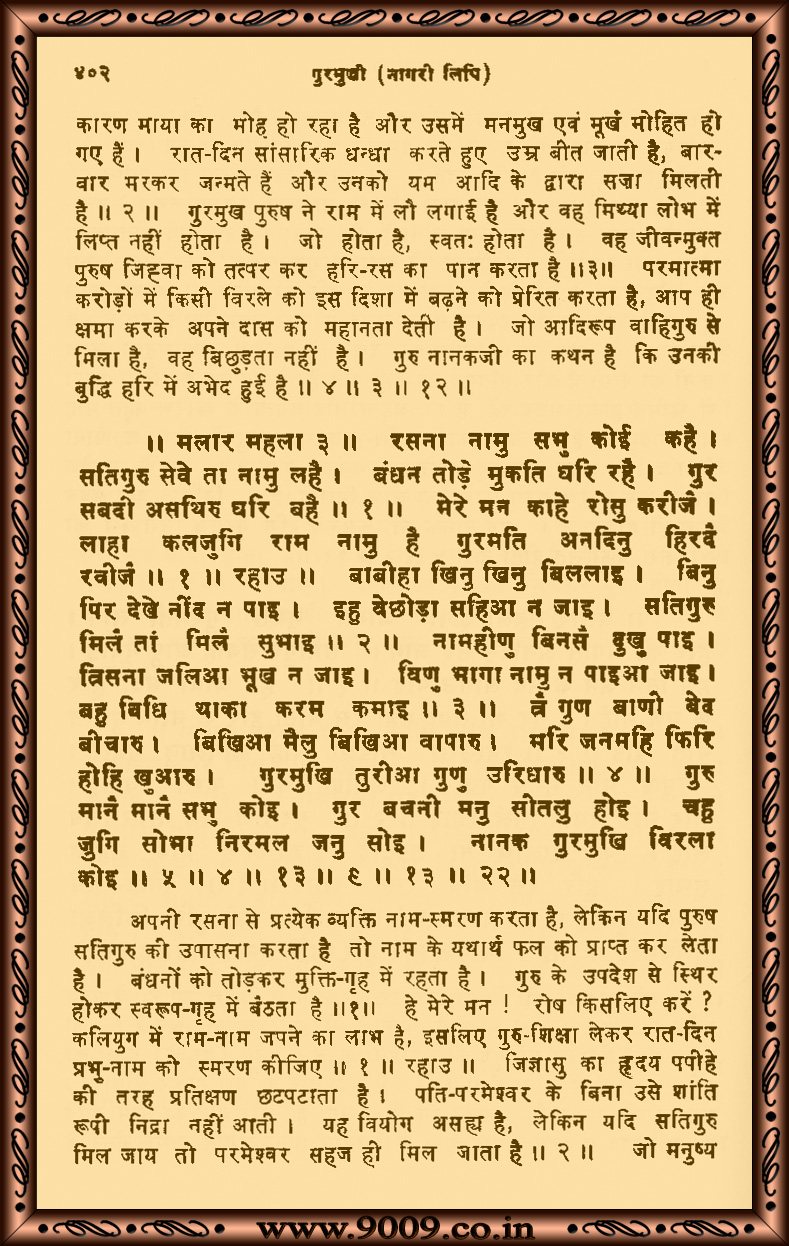 ४०२ गुरमुखी (नागरी लिपि)
कारण माया का मोह हो रहा है और उसमें मनमुख एवं मूर्ख मोहित हो
गए हैं । रात-दिन सांसारिक धन्धा करते हुए उम्र बीत जाती है, बार-
बार मरकर जन्मते हैं और उनको यम आदि के द्वारा सज़ा मिलती
है ॥ २ ॥ गुरमुख पुरुष ने राम में लौ लगाई है और वह मिथ्या लोभ में
लिप्त नहीं होता है । जो होता है, स्वतः होता है । वह जीवन्मुक्त
पुरुष जिह्वा को तत्पर कर हरि-रस का पान करता है ॥३॥ परमात्मा
करोड़ों में किसी विरले को इस दिशा में बढ़ने को प्रेरित करता है, आप ही
क्षमा करके अपने दास को महानता देती है । जो आदिरूप वाहिगुरु से
मिला है, वह बिछुड़ता नहीं है । गुरु नानकजी का कथन है कि उनकी
बुद्धि हरि में अभेद हुई है ॥ ४ ॥ ३ ॥ १२ ॥
॥ मलार महला ३ ॥ रसना नामु सभु कोई कहै ।
सतिगुरु सेवे ता नामु लहै । बंधन तोड़े मुकति घरि रहै । गुर
सबदी असथिरु घरि बहै ॥ १ ॥ मेरे मन काहे रोसु करीजै ।
लाहा कलजुगि राम नामु है गुरमति अनदिनु हिरदै
रवीजै ॥ १ ॥ रहाउ ॥ बाबीहा खिनु खिनु बिललाइ । बिनु
पिर देखे नींद न पाइ । इहु वेछोड़ा सहिआ न जाइ । सतिगुरु
मिलै तां मिलै सुभाइ ॥ २ ॥ नामहीणु बिनसै दुखु पाइ ।
त्रिसना जलिआ भूख न जाइ । विणु भागा नामु न पाइआ जाइ ।
बहु बिधि थाका करम कमाइ ॥ ३ ॥ त्रै गुण बाणी बेद
बीचारु । बिखिआ मैलु बिखिआ वापारु । मरि जनमहि फिरि
होहि खुआरु । गुरमुखि तुरीआ गुणु उरिधारु ॥ ४ ॥ गुरु
मानै मानै सभु कोइ । गुर बचनी मनु सीतलु होइ । चहु
जुगि सोभा निरमल जनु सोइ । नानक गुरमुखि विरला
कोइ ॥ ५ ॥ ४ ॥ १३ ॥ ९ ॥ १३ ॥ २२ ॥
अपनी रसना से प्रत्येक व्यक्ति नाम-स्मरण करता है, लेकिन यदि पुरुष
सतिगुरु की उपासना करता है तो नाम के यथार्थ फल को प्राप्त कर लेता
है । बंधनों को तोड़कर मुक्ति-गृह में रहता है । गुरु के उपदेश से स्थिर
होकर स्वरूप-गृह में बैठता है ॥१॥ हे मेरे मन ! रोष किसलिए करें ?
कलियुग में राम-नाम जपने का लाभ है, इसलिए गुरु-शिक्षा लेकर रात-दिन
प्रभु-नाम को स्मरण कीजिए ॥ १ ॥ रहाउ ॥ जिज्ञासु का हृदय पपीहे
की तरह प्रतिक्षण छटपटाता है । पति-परमेश्वर के बिना उसे शांति
रूपी निद्रा नहीं आती । यह वियोग असह्य है, लेकिन यदि सतिगुरु
मिल जाय तो परमेश्वर सहज ही मिल जाता है ॥ २ ॥ जो मनुष्य
www.9009.co.in